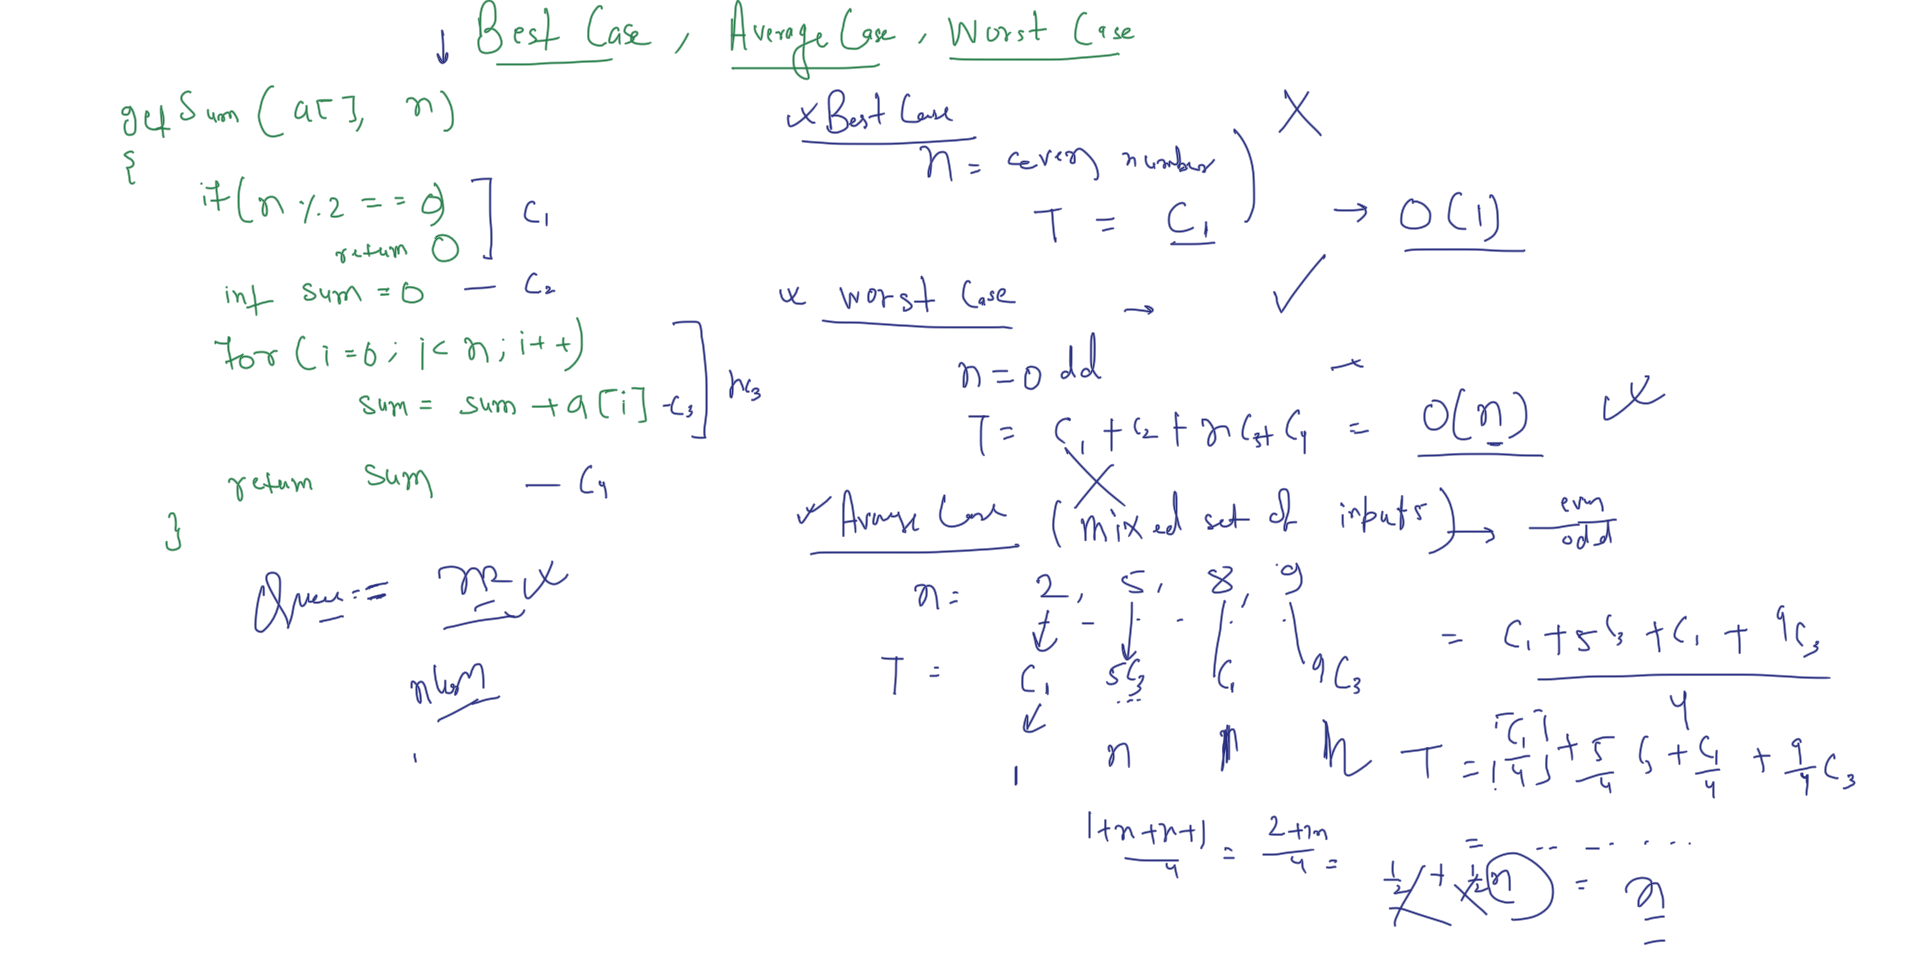 Best Case, Average Case, Worst Case
getSum(a[], n)
{
if(n % 2 == 0)
return 0
C1
int sum = 0 — C2
for(i=0; i< n; i++)
sum = sum + a[i] - C3
nC3
return sum — C4
}
n²
Best Case
n = even number
T = C1 → O(1)
Worst Case →
n = odd
T = C1 + C2 + nC3 + C4 = O(n)
Average Case (mixed set of inputs) → even
odd
n = 2, 5, 8, 9
T = C1 5C3 C1 9C3
= C1 + 5C3 + C1 + 9C3
4
1 n n
T = C1/4 + 5/4 C3 + C1/4 + 9/4 C3
1+n+n+1/4 = 2+2n/4 =
= .. - . . ...
1/2 + 1/2 n = n